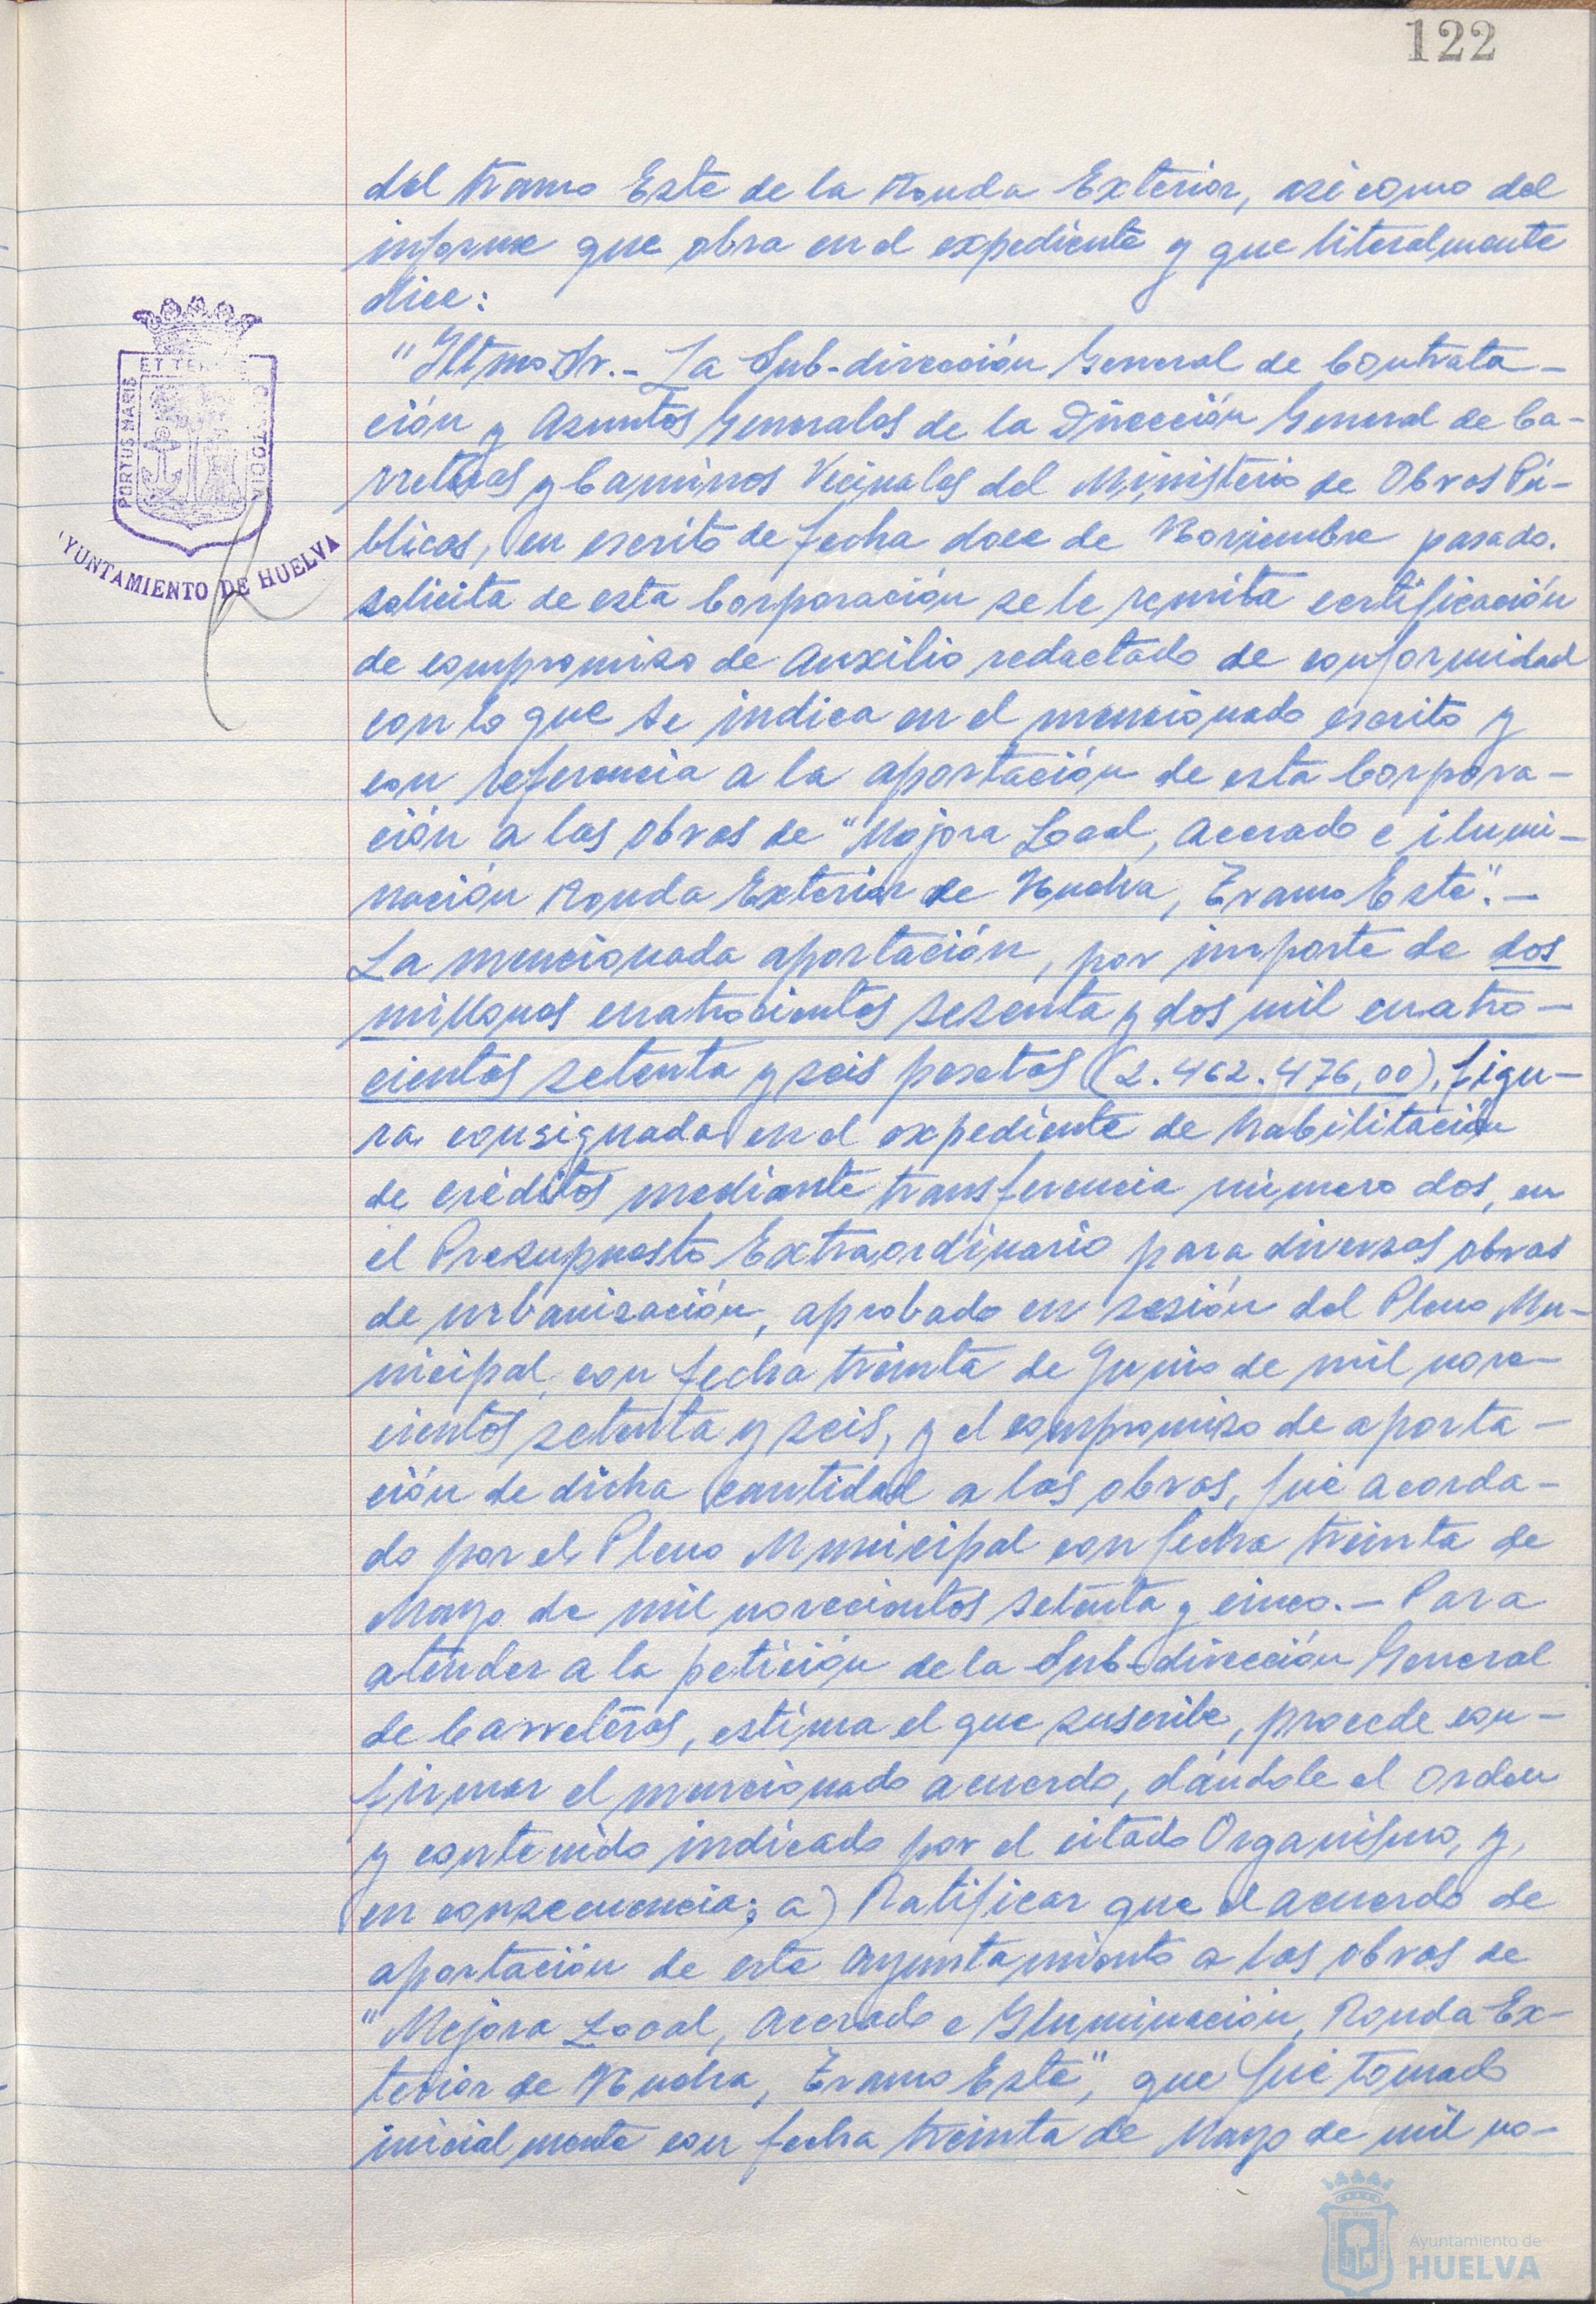 122
del tramo Este de la Ronda Exterior, asi como del
informe que obra en el expediente y que literalmente
dice:
"Iltmo Sr.- La Sub-dirección General de Contrata-
ción y Asuntos Generales de la Dirección General de Ca-
rreteras y Caminos Vecinales del Ministerio de Obras Pú-
blicas, en escrito de fecha doce de Noviembre pasado.
solicita de esta Corporación se le remita certificación
de compromiso de Auxilio redactado de conformidad
con lo que se indica en el mencionado escrito y
con referencia a la aportación de esta Corpora-
ción a las obras de "Mejora Local, Acerado e ilumi-
nación Ronda Exterior de Huelva, Tramo Este".-
La mencionada aportación, por importe de dos
millones cuatrocientos sesenta y dos mil cuatro-
cientas setenta y seis pesetas (2.462.476,00), figu-
ra consignada en el expediente de habilitación
de créditos mediante transferencia número dos, en
el Presupuesto Extraordinario para diversas obras
de urbanización, aprobado en sesión del Pleno Mu-
nicipal, con fecha treinta de Junio de mil nove-
cientos setenta y seis, y el compromiso de aporta-
ción de dicha cantidad a las obras, fué acorda-
do por el Pleno Municipal con fecha treinta de
Mayo de mil novecientos setenta y cinco.- Para
atender a la petición de la Sub-dirección General
de Carreteras, estima el que suscribe, procede con-
firmar el mencionado acuerdo, dándole el orden
y contenido indicado por el citado Organismo, y,
en consecuencia; a) Ratificar que el acuerdo de
aportación de este Ayuntamiento a las obras de
"Mejora Local, Acerado e Iluminación, Ronda Ex-
terior de Huelva, Tramo Este", que fué tomado
inicialmente con fecha treinta de Mayo de mil no-
PORTUS MARIS
ET TERRAE
CUSTODIA
AYUNTAMIENTO DE HUELVA
Ayuntamiento de
HUELVA